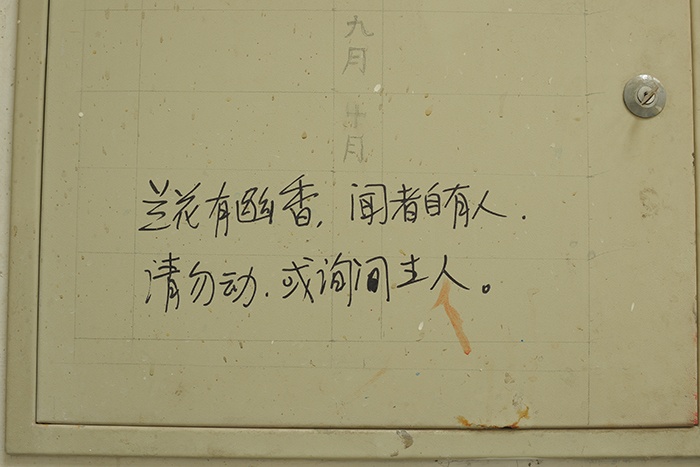 九月
十月
兰花有幽香，闻者自有人.
请勿动.或询问主人。